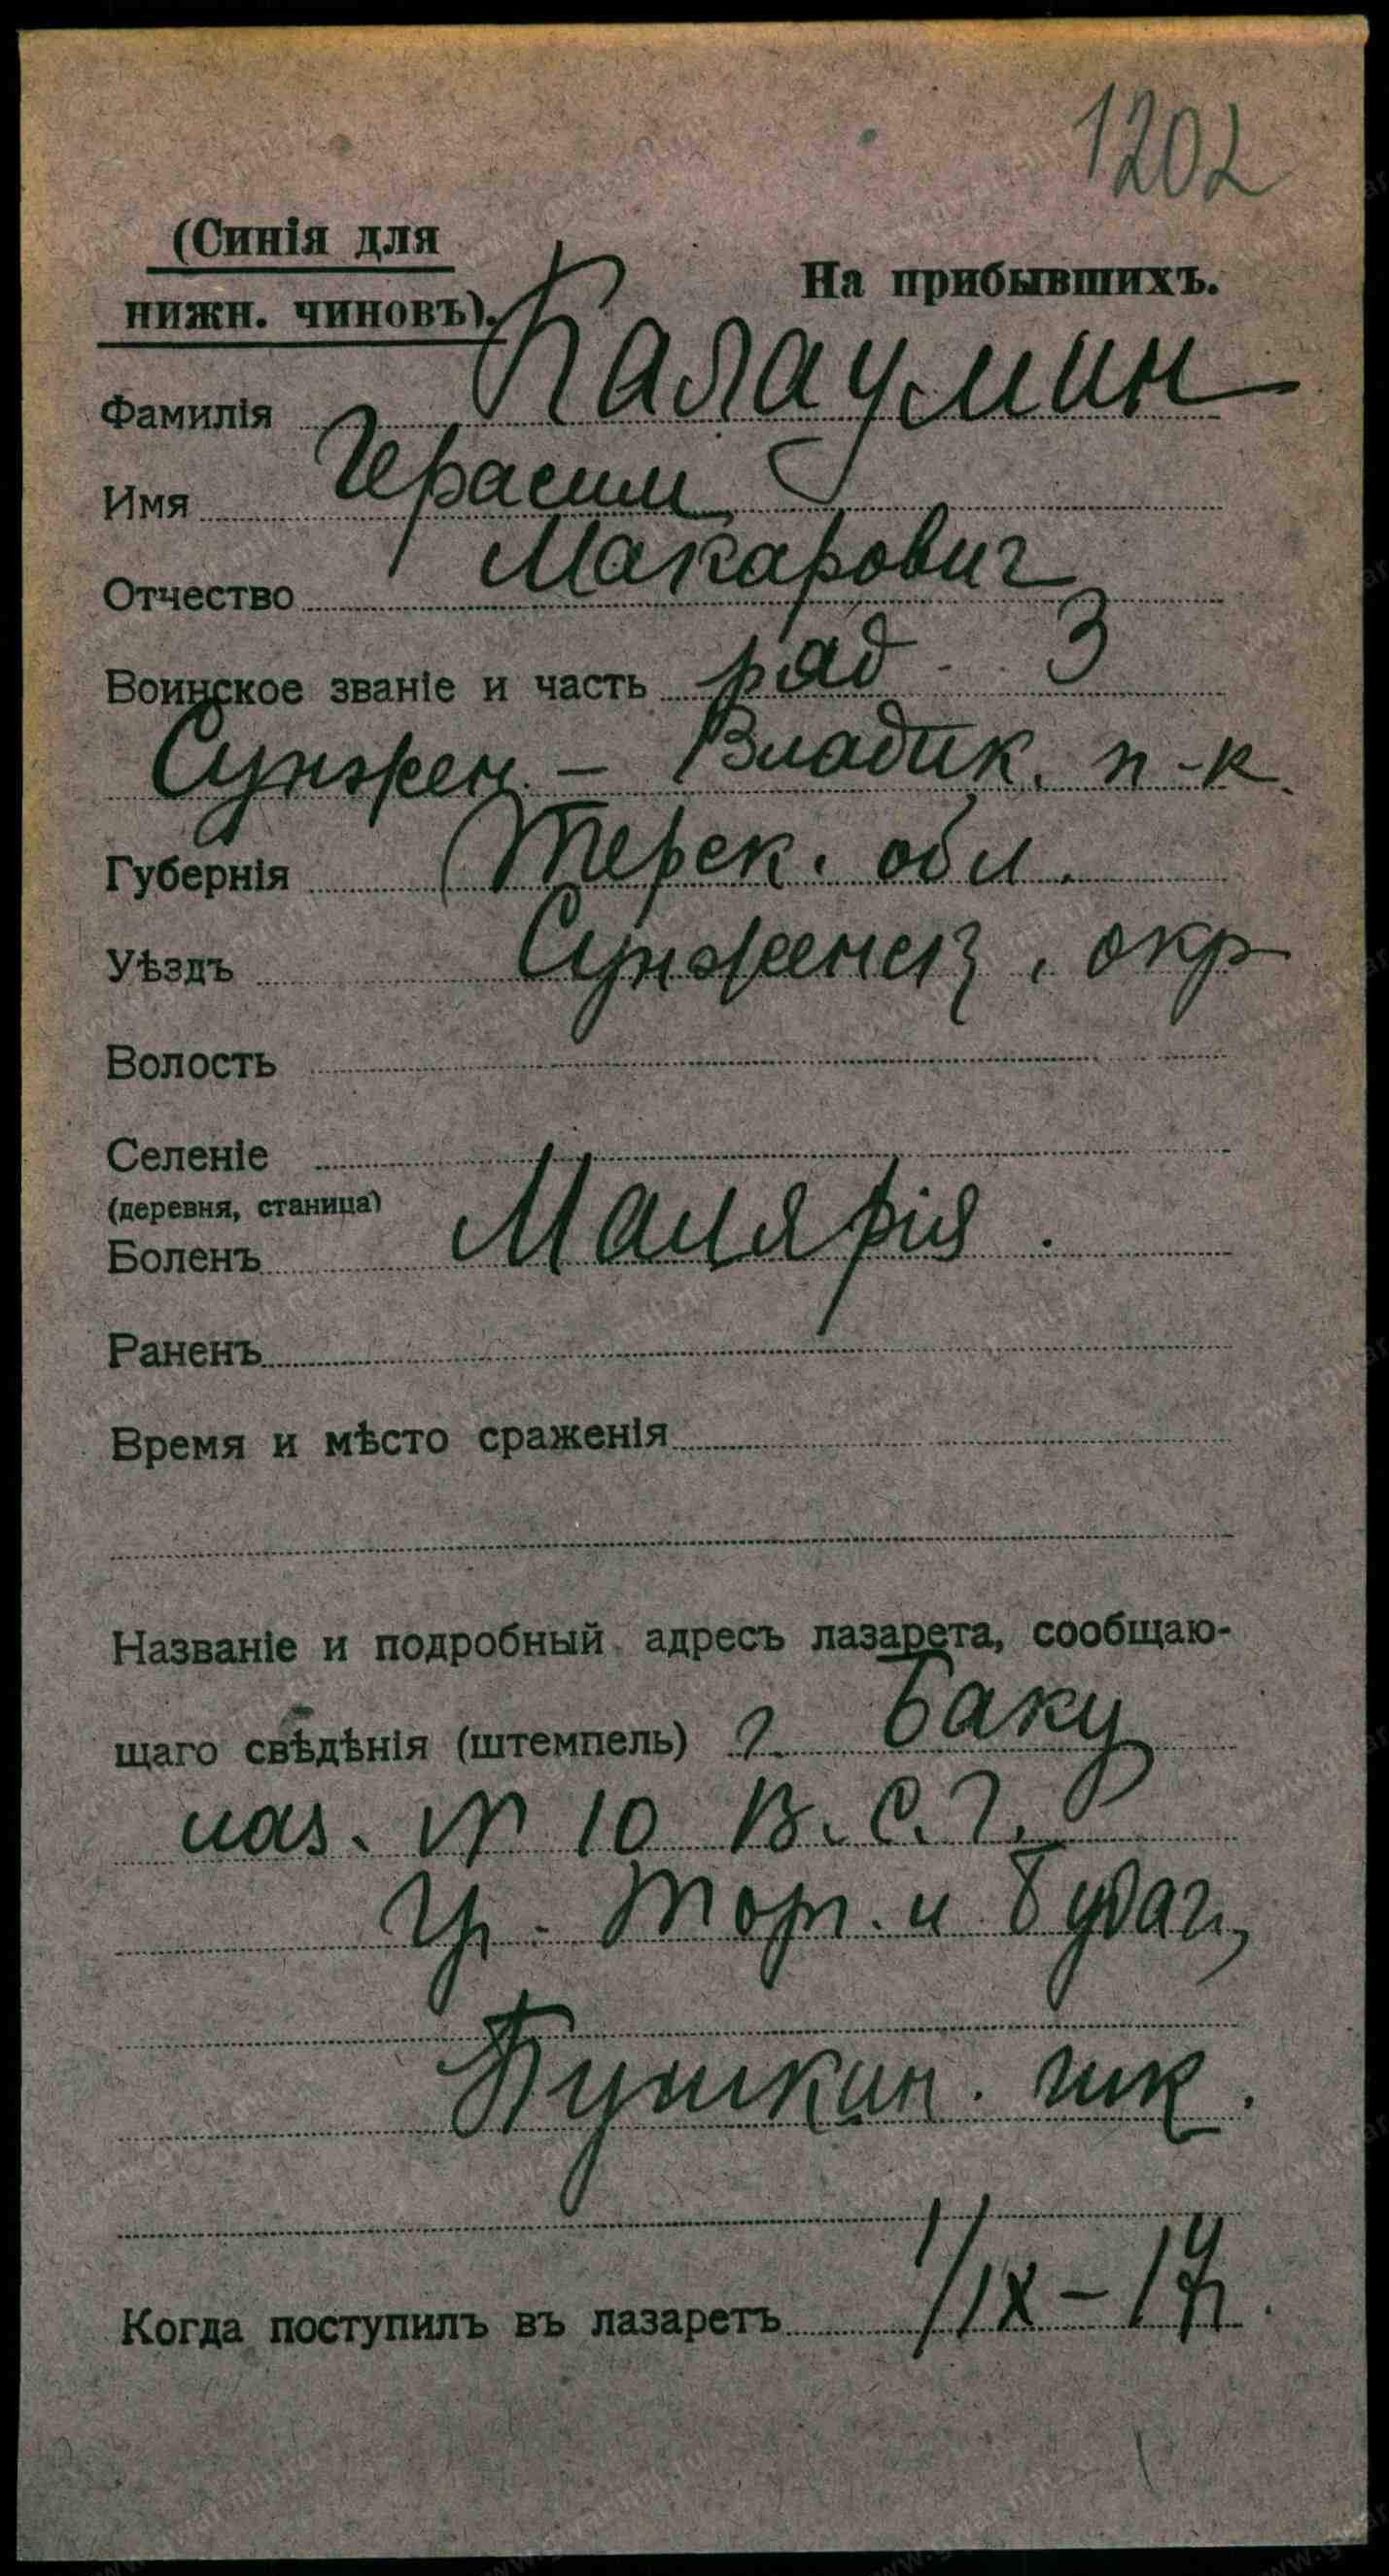 1202
(Синія для
нижн. чиновъ).
На прибывшихъ.
Фамилія Калаумин
Имя Герасим
Отчество Макарович
Воинское званіе и часть ряд. 3
Сунжен. - Владик. п-к.
Губернія Терск. обл.
Уѣздъ Сунженск. окр
Волость
Селеніе
(деревня, станица)
Боленъ Малярія.
Раненъ
Время и мѣсто сраженія
Названіе и подробный адресъ лазарета, сообщаю-
щаго свѣдѣнія (штемпель) г. Баку
лаз. № 10 В. С. Г.
уг. Торг. и Будаг,
Пушкин. шк.
Когда поступилъ въ лазаретъ 1/IX - 17 г.